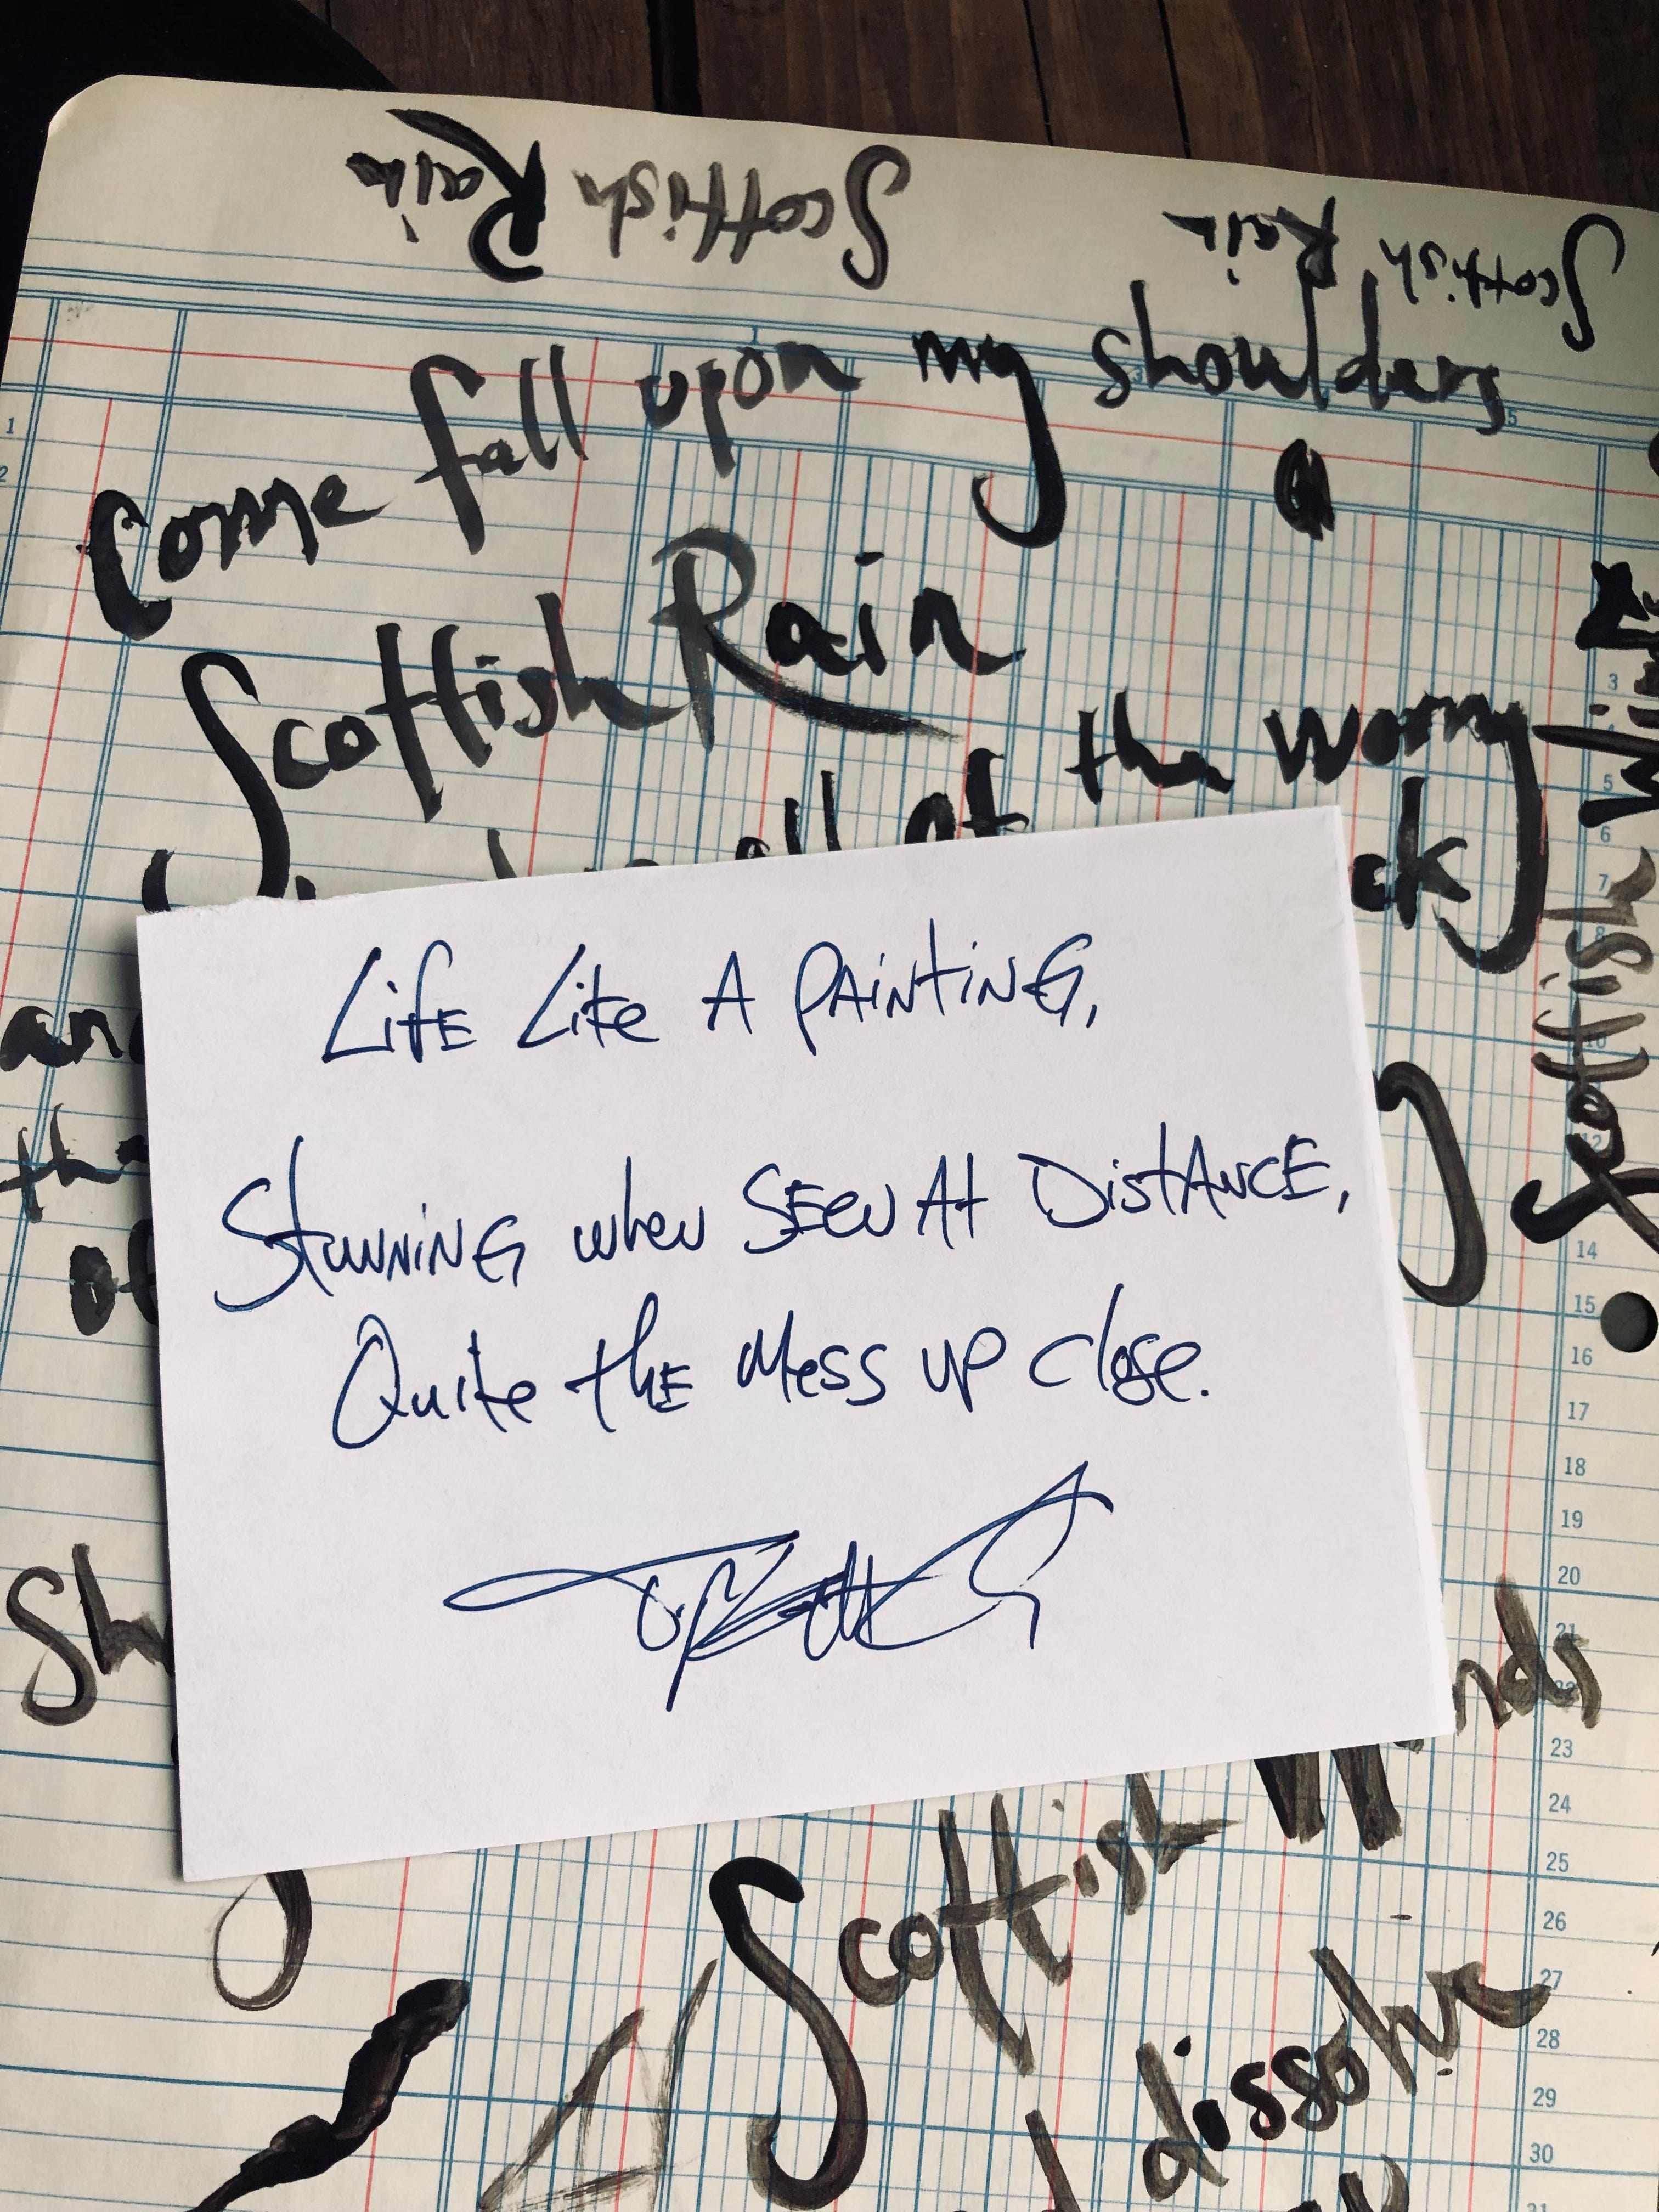 Scottish Rain
Scottish Rain
Come fall upon my shoulders
Scottish Rain
all of the worry
Scottish Winds
Life Like A Painting,
Stunning when Seen At Distance,
Quite the Mess up close.
Scottish
dissolve
1
2
3
4
5
6
7
8
10
12
14
15
16
17
18
19
20
21
22
23
24
25
26
27
28
29
30
31